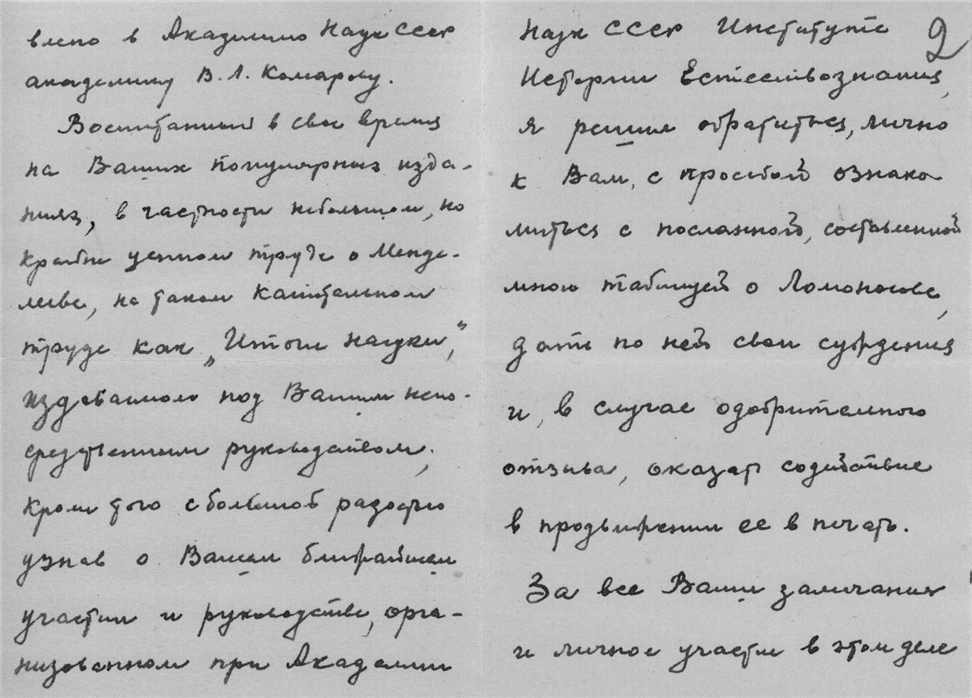 влено в Академию Наук СССР
академику В. Л. Комарову.
Воспитанный в свое время
на Ваших популярных изда-
ниях, в частности небольшом, но
крайне ценном труде о Менде-
лееве, на таком капитальном
труде как „Итоги науки“,
издаваемом под Вашим непо-
средственным руководством,
кроме того с большой радостью
узнав о Вашем ближайшем
участии и руководстве, орга-
низованном при Академии
2
Наук СССР Институте
Истории Естествознания,
я решил обратиться, лично
к Вам, с просьбой ознако
миться с посланной, составленной
мною таблицей о Ломоносове,
дать по ней свои суждения
и, в случае одобрительного
отзыва, оказать содействие
в продвижении ее в печать.
За все Ваши замечания
и личное участие в этом деле